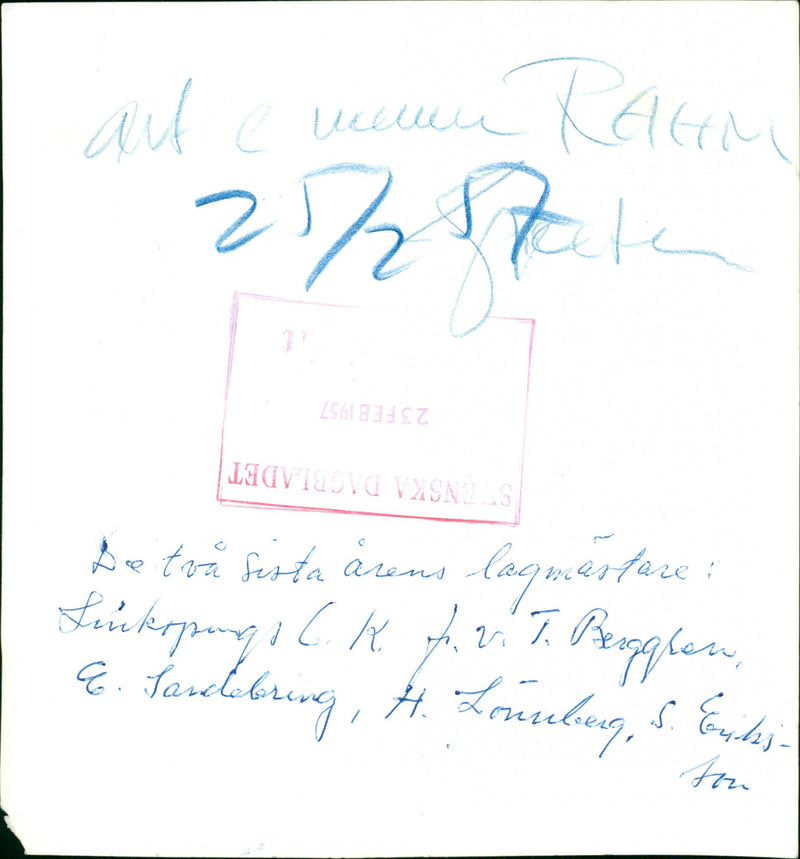 art c RAHM
25/2 57
23 FEB 1957
SVENSKA DAGBLADET
De två sista årens lagmästare:
Linköpings C. K. fr. v. T. Berggren,
E. Sandebring, H. Lönnberg, S. Eriks-
son